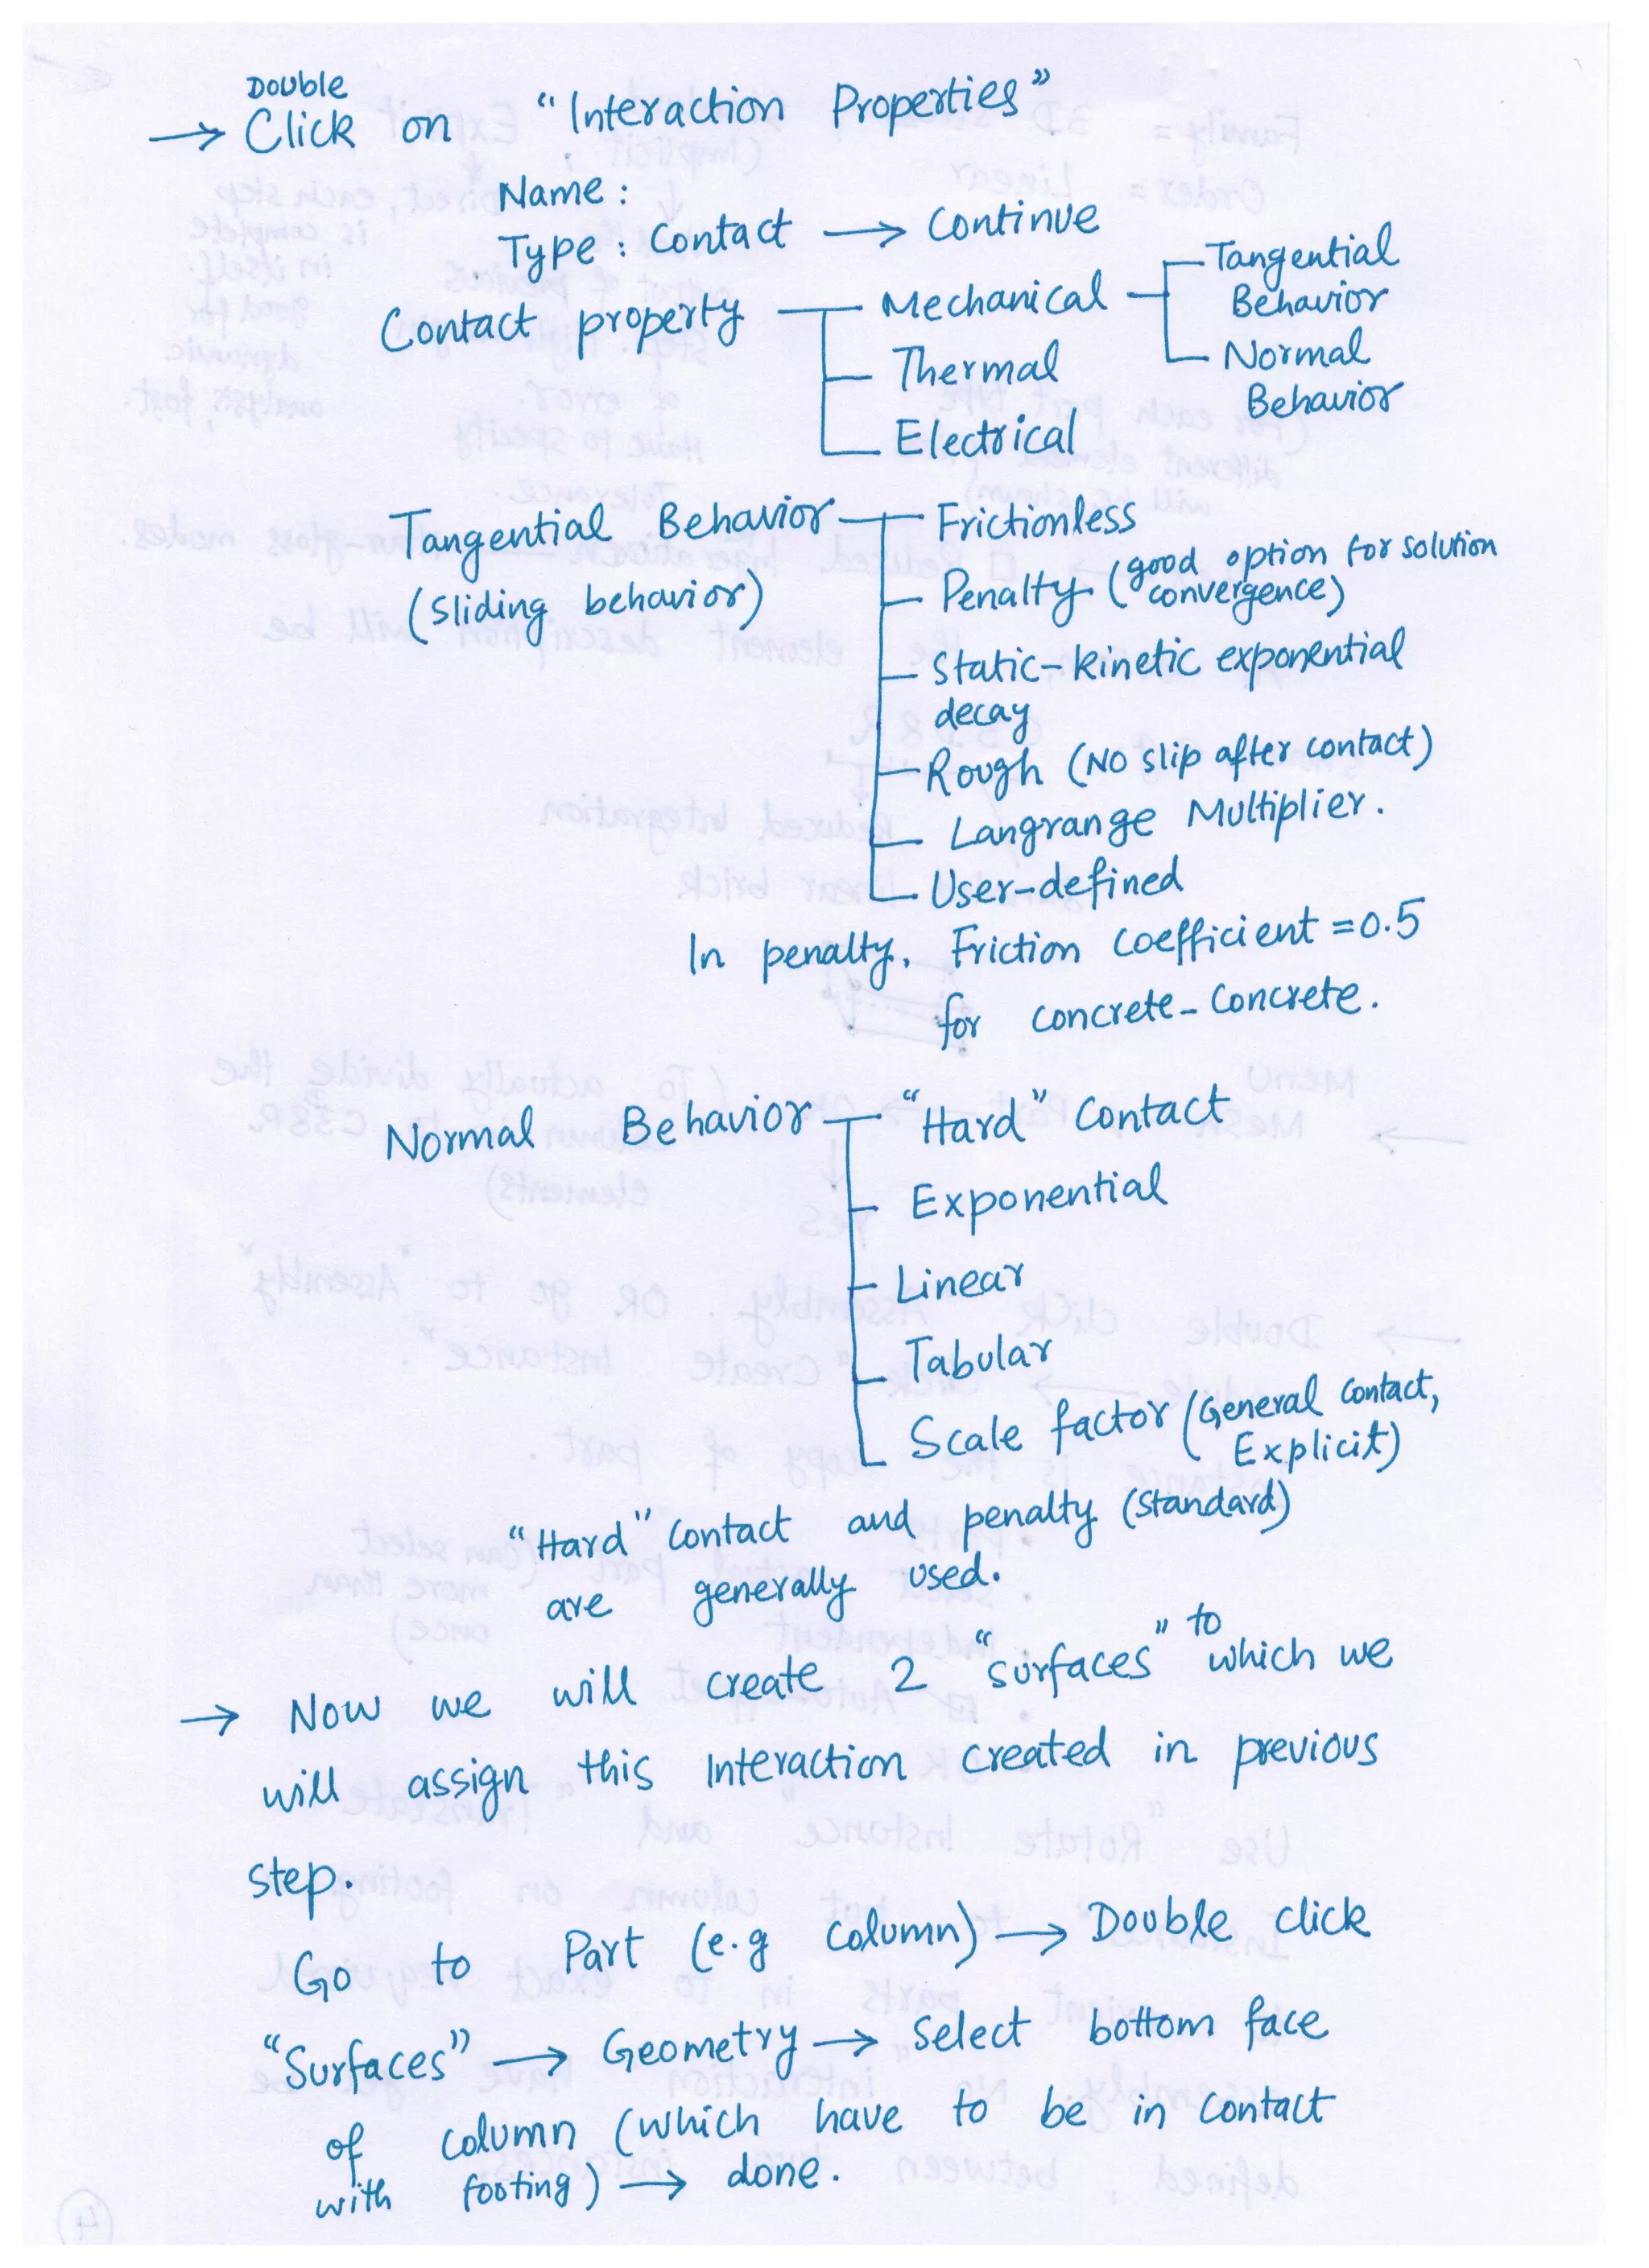 Double
→ Click on "Interaction Properties"
Name :
Type : Contact → Continue
Contact property
Mechanical
Tangential Behavior
Normal Behavior
Thermal
Electrical
Tangential Behavior
(sliding behavior)
Frictionless
Penalty (good option for solution
convergence)
Static-kinetic exponential
decay
Rough (No slip after contact)
Langrange Multiplier.
User-defined
In penalty, Friction coefficient = 0.5
for concrete-concrete.
Normal Behavior
"Hard" Contact
Exponential
Linear
Tabular
Scale factor (General Contact,
Explicit)
"Hard" Contact and penalty (standard)
are generally used.
→ Now we will create 2 "surfaces" to which we
will assign this Interaction created in previous
step.
Go to Part (e.g column) → Double click
"Surfaces" → Geometry → Select bottom face
of column (which have to be in contact
with footing) → done.